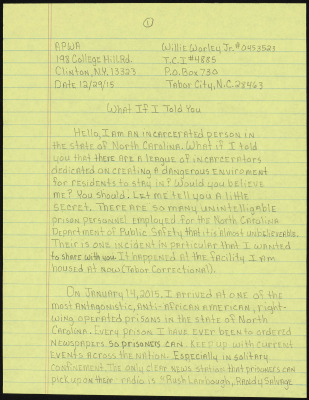 1
APWA Willie Worley Jr. #0453521
198 College Hill Rd. T.C.I #4885
Clinton, N.Y. 13323 P.O. Box 730
Date 12/29/15 Tabor City, N.C. 28463
What If I Told You
Hello, I am an incarcerated person in
the state of North Carolina. What if I told
you that there are a league of incarcerators
dedicated on creating a dangerous enviroment
for residents to stay in? Would you believe
me? You should. Let me tell you a little
secret. There are so many unintelligable
prison personnel employed for the North Carolina
Department of Public Safety that it is almost unbelievable.
Their is one incident in particular that I wanted
to share with you. It happened at the facility I am
housed at now (Tabor Correctional).
On January 14, 2015, I arrived at one of the
most antagonistic, anti-African American, right-
wing operated prisons in the state of North
Carolina. Every prison I have ever been to ordered
Newspapers so prisoners can keep up with current
events across the nation. Especially in solitary
confinement. The only clear news station that prisoners can
pick up on their radio is: Rush Limbaugh, Randy Salvage